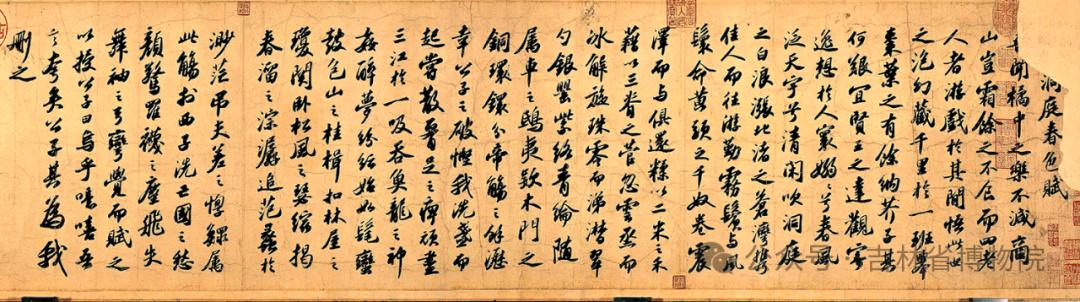 洞庭春色賦
聞橘中之樂不減商
山豈霜餘之不食而四老
人者游戲於其間悟此世
之泡幻藏千里於一班舉
棗葉之有餘納芥子其
何艱宜賢王之達觀寄
逸想於人寰嫋嫋兮春風
泛天宇兮清閑吹洞庭
之白浪漲北渚之蒼灣攜
佳人而往游勤霧鬢與風
鬟命黃頭之千奴卷震
澤而與俱還糅以二米之禾
藉以三脊之菅忽雲烝而
冰解旋珠零而涕潸翠
勺銀罌紫絡青綸隨
屬車之鴟夷款木門之
銅環鐶分帝觴之餘瀝
幸公子之破慳我洗盞而
起嘗散腰足之痹頑盡
三江於一吸吞魚龍之神
姦醉夢紛紜始如髦蠻
鼓包山之桂楫扣林屋之
瓊關臥松風之瑟縮揭
春溜之淙潺追范蠡於
渺茫吊夫差之惸鰥屬
此觴於西子洗亡國之愁
顏驚羅襪之塵飛失
舞袖之弓彎覺而賦之
以授公子曰烏乎噫嘻吾
言夸矣公子其為我
刪之
公众号 · 吉林省博物院